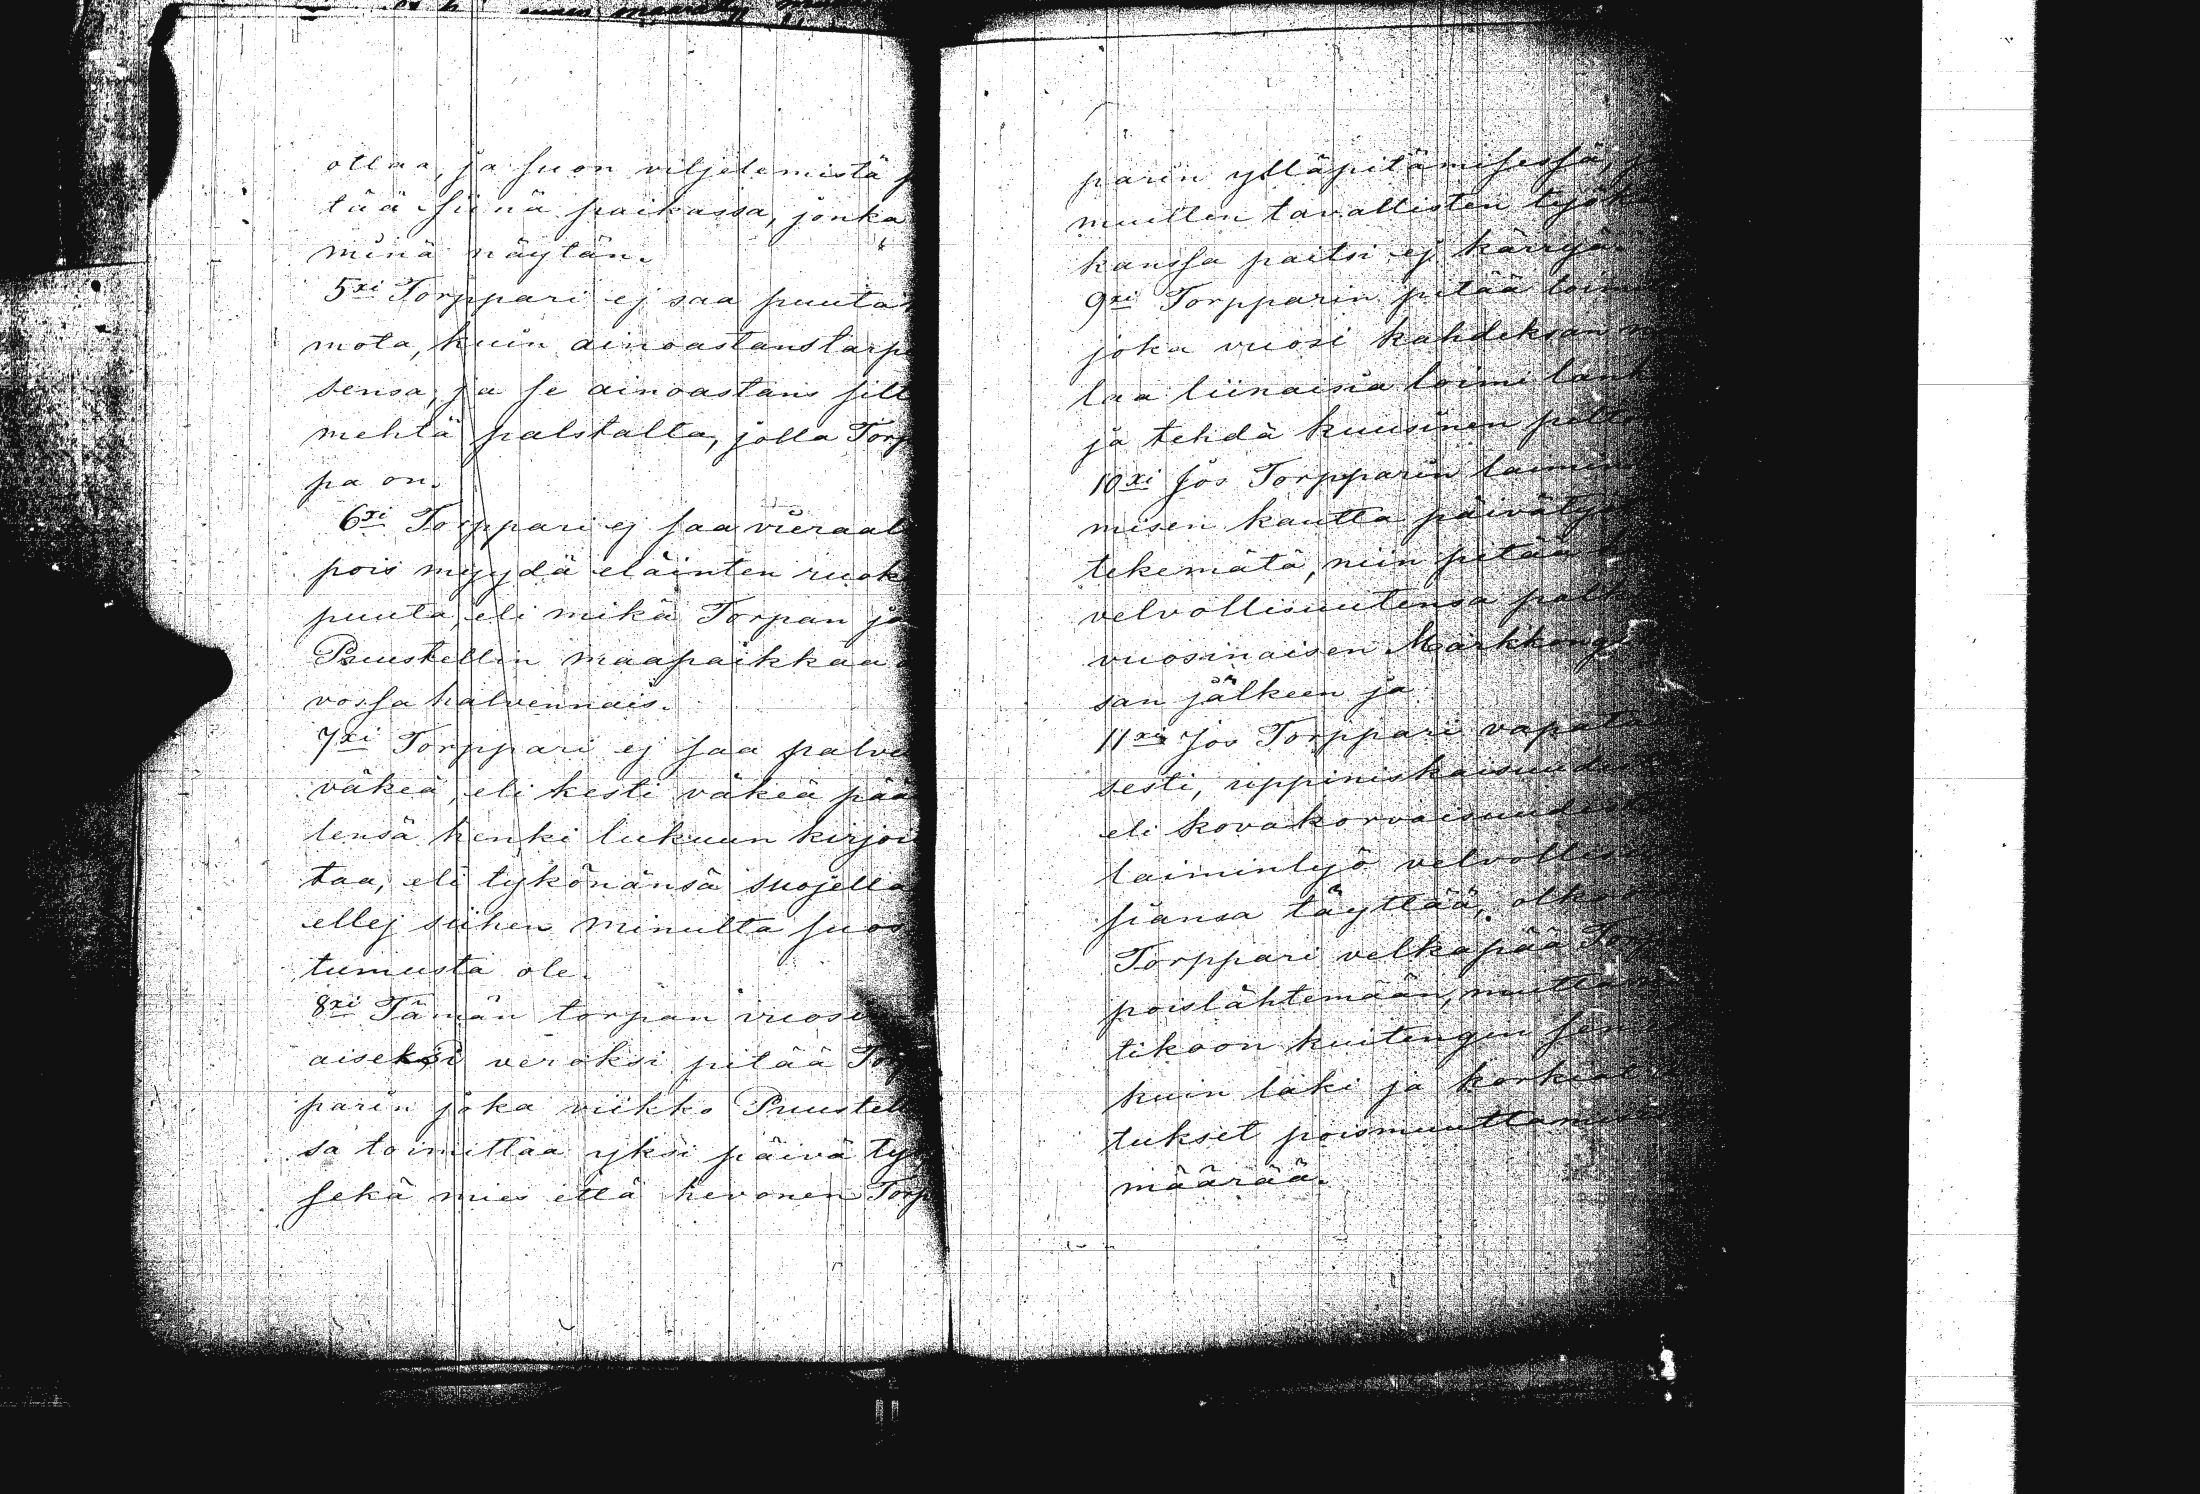 ottaa, ja suon viljelemistä
tää siinä paikassa, jonka
minä näytän.
5xi Torppari ej saa puuta
mota, kuin ainoastans tarpe
sensa, ja se ainoastans sill
mehtä palstalta, jolla Torp
pa on.
6xi Torppari ej saa vieraal
pois myydä eläinten ruok
puuta, eli mikä Torpan ja
Puustellin maapaikkaa
vossa halvennais.
7xi Torppari ej saa palve
väkeä, eli kesti väkeä pää
lensä henki lukuun kirjoi
taa, eli tykönänsä suojella
ellej siihen minulta suos
tumusta ole.
8xi Tämän torpan vuosi
aiseksi veroksi pitää Torp
parin joka viikko Puustell
sa toimittaa yksi päivä työ
sekä mies että hevonen Torp
parin ylläpitämisessä,
muitten tavallisten työka
kanssa paitsi ej kärryä.
9xi Torpparin pitää toim
joka vuosi kahdeksan
laa liinaisia loimi lank
ja tehdä kuusinen pelto
10xi Jos Torpparin laimin
misen kautta päivätyö
tekemätä, niin pitää
velvollisuutensa palk
vuosinaisen Markkong
san jälkeen ja
11xi Jos Torppari vapata
sesti, uppiniskaisuudest
eli kovakorvaisuudesta
laiminlyö velvollisu
siansa täyttää, olkoon
Torppari velkapää Torp
poislähtemään, mutta
tikoon kuitengin sen
kuin laki ja korkiat
tukset poismuuttamise
määrää.